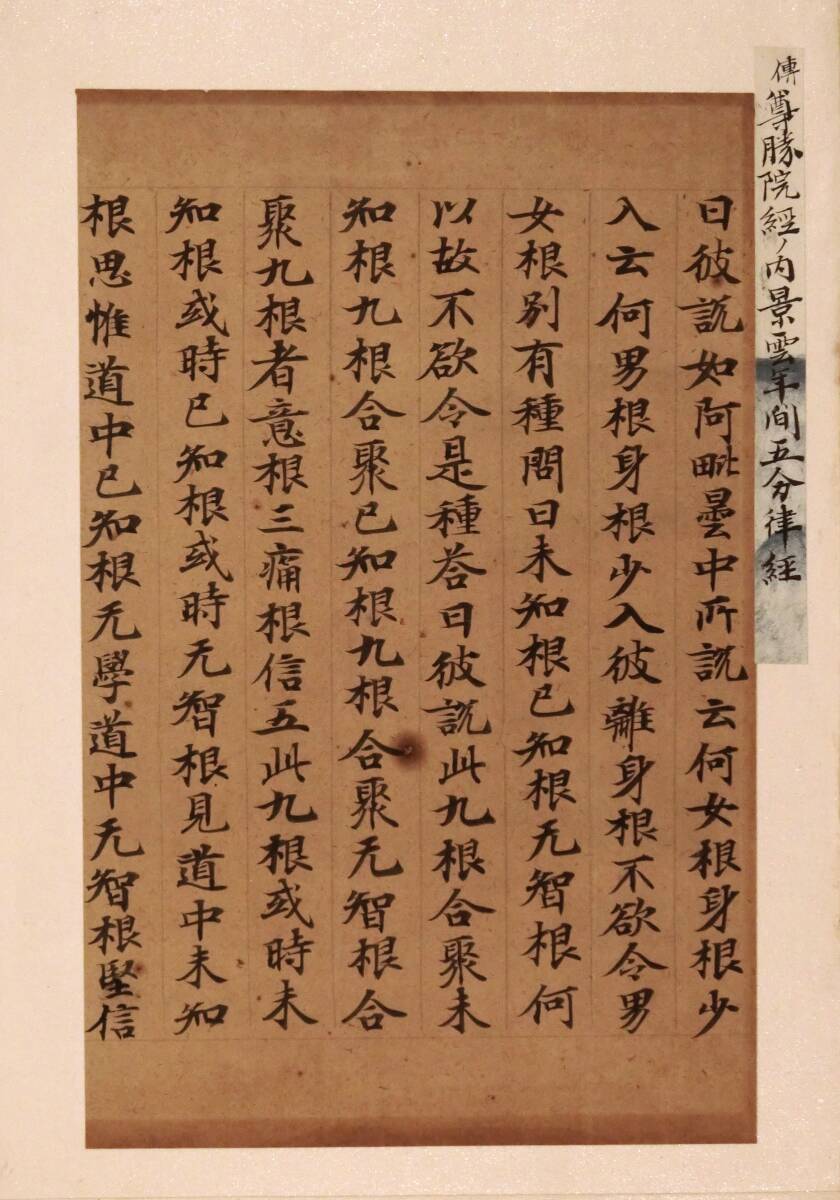 傳尊勝院經ノ内景雲年間五分律經
曰彼説如阿毗曇中所説云何女根身根少
入云何男根身根少入彼離身根不欲令男
女根別有種問曰未知根已知根无智根何
以故不欲令是種荅曰彼説此九根合聚未
知根九根合聚已知根九根合聚无智根合
聚九根者意根三痛根信五此九根或時未
知根或時已知根或時无智根見道中未知
根思惟道中已知根无學道中无智根堅信